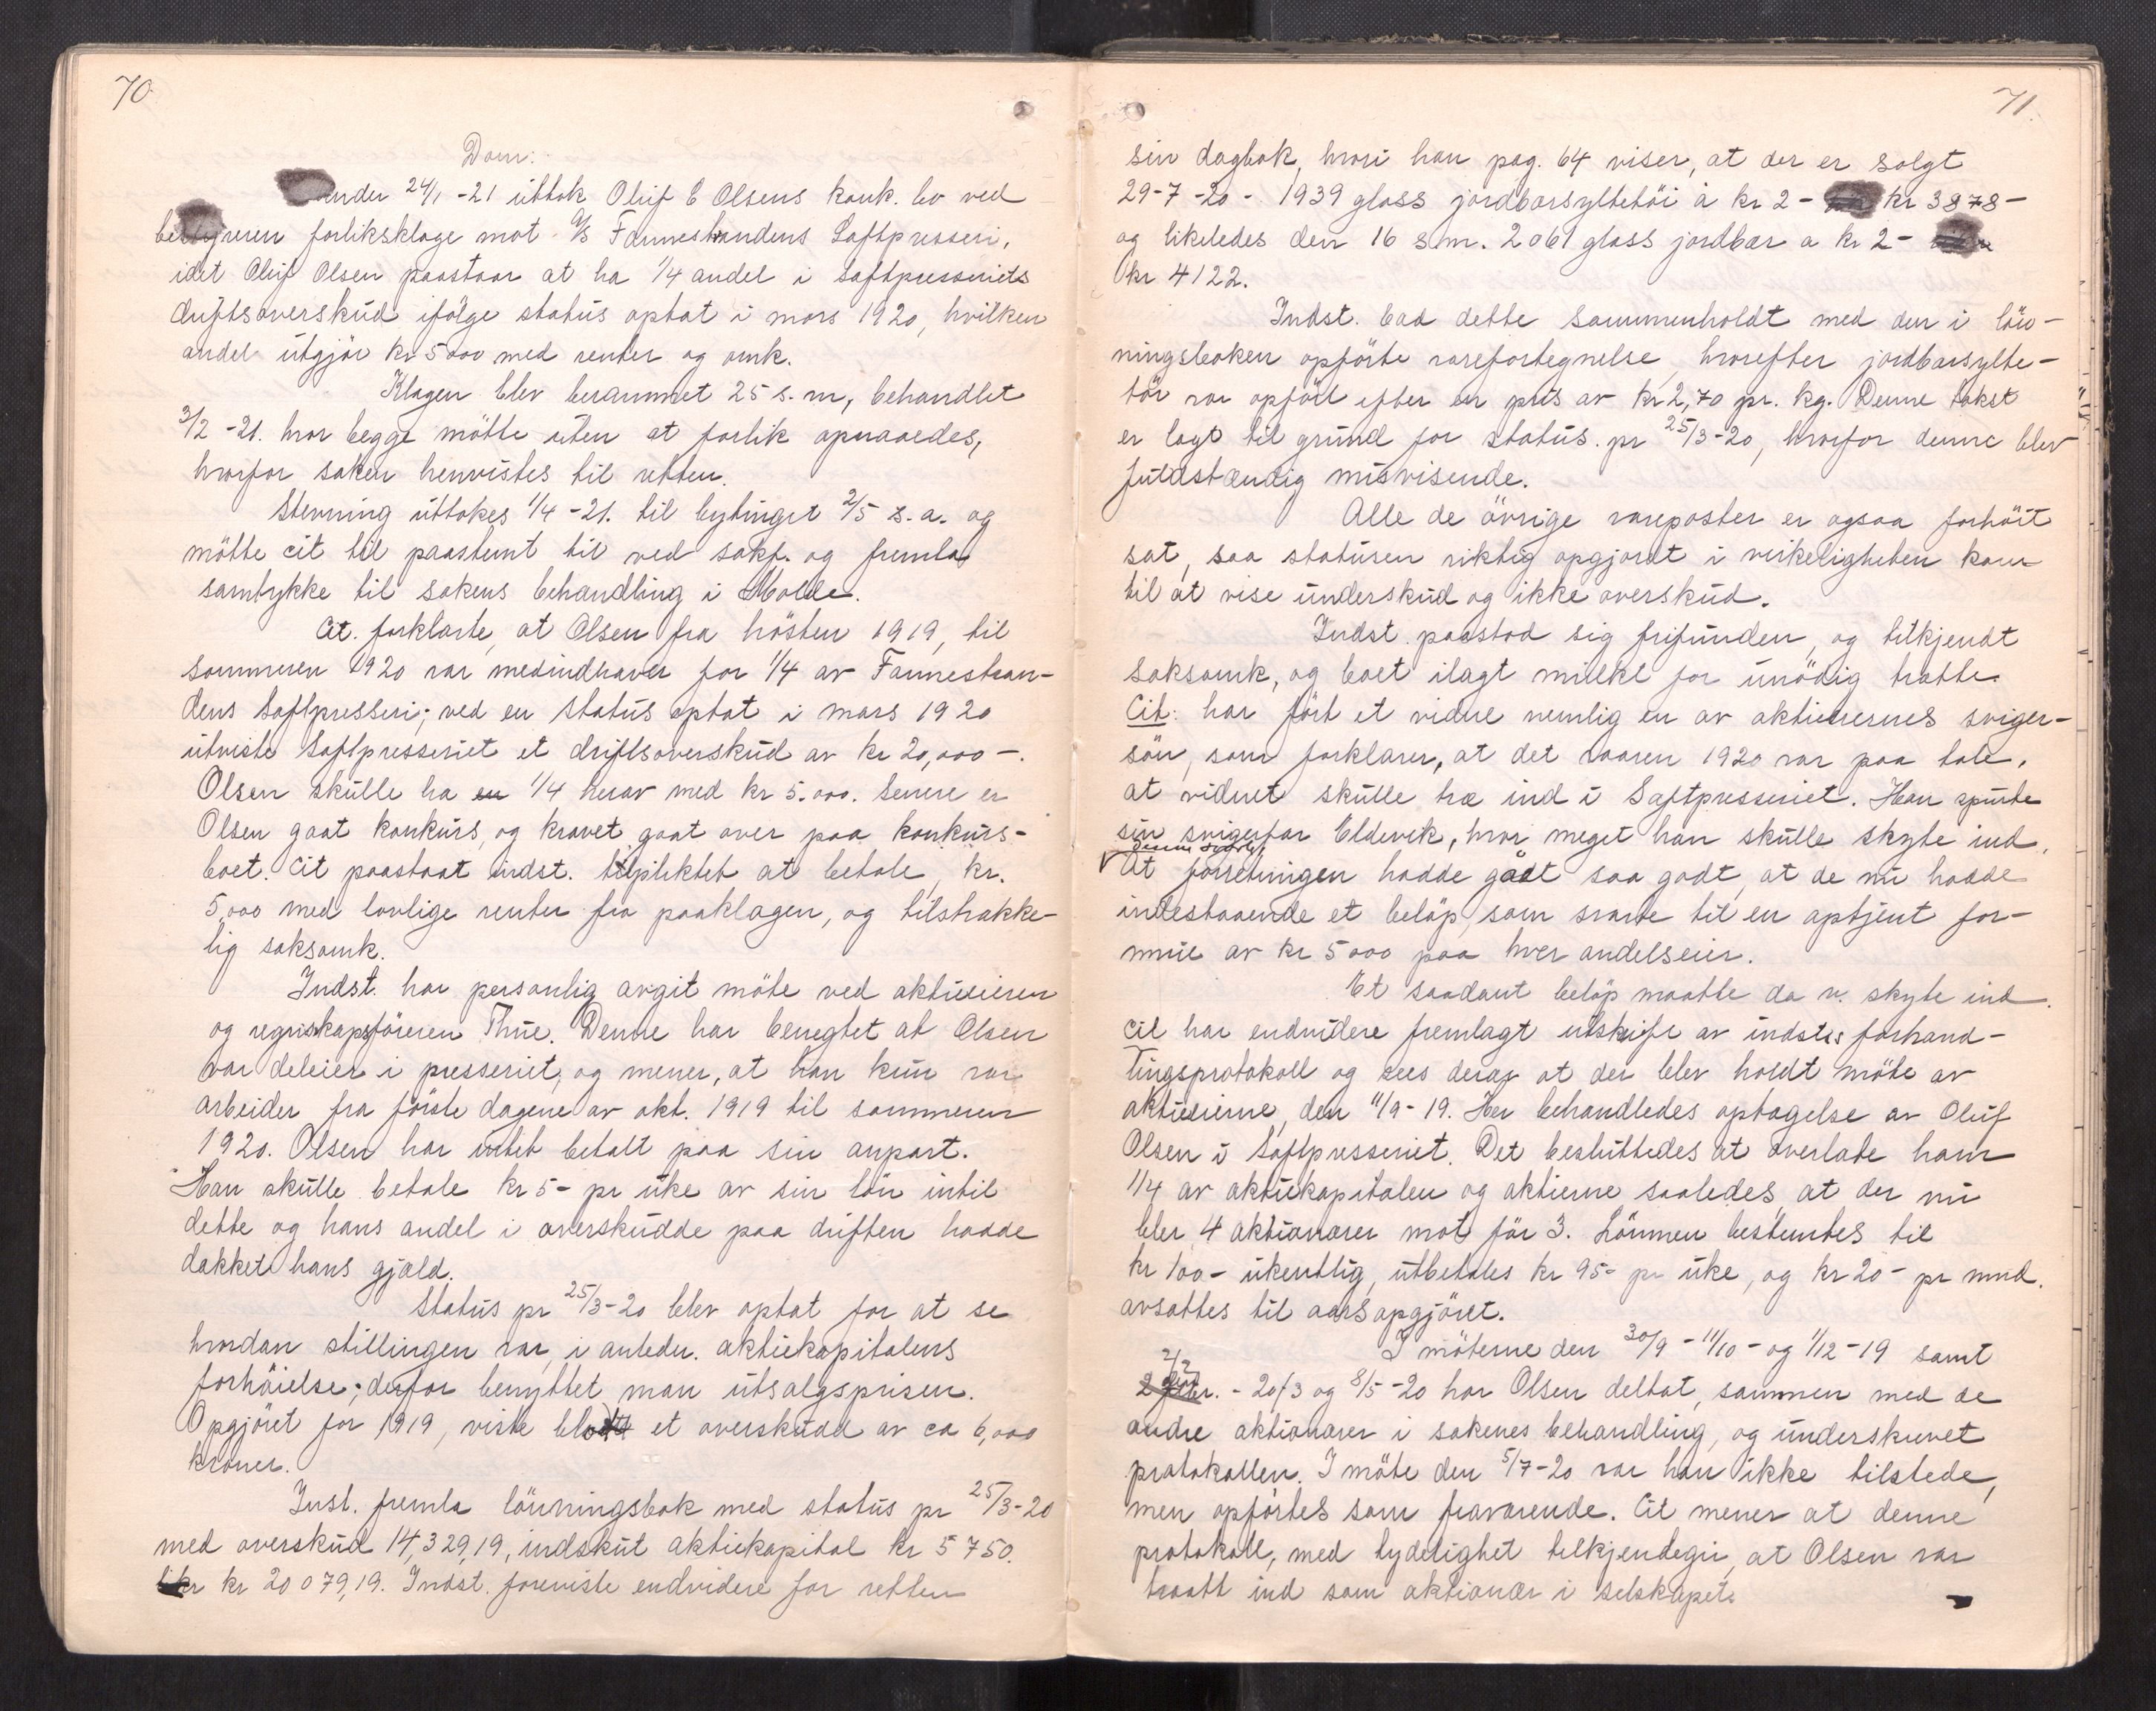 70
Dom:
under 24/1 -21 uttok Oluf E Olsens konk. bo ved
bestyreren forliksklage mot A/S Fannestrandens Saftpresseri,
idet Oluf Olsen paastaar at ha 1/4 andel i saftpresseriets
driftsoverskud ifölge status optat i mars 1920, hvilken
andel utgjör kr 5000 med renter og omk.
Klagen blev berammet 25 s.m, behandlet
3/2 -21. hvor begge mötte uten at forlik opnaaedes,
hvorfor saken henvistes til retten.
Stevning uttokes 1/4 -21. til bytinget 2/5 s.a. og
mötte cit til paastemt tid ved sakf. og fremla
samtykke til sakens behandling i Molde.
Cit. forklarte, at Olsen fra hösten 1919, til
sommeren 1920 var medindhaver for 1/4 av Fannestran-
dens Saftpresseri; ved en status optat i mars 1920
utviste Saftpresseriet et driftsoverskud av kr 20,000-.
Olsen skulle ha en 1/4 herav med kr 5.000. Senere er
Olsen gaat konkurs, og kravet gaat over paa konkurs-
boet. Cit paastaat indst. tilpliktet at betale, kr.
5,000 med lovlige renter fra paaklagen, og tilstrække-
lig saksomk.
Indst. har personlig avgit möte ved aktieeieren
og regnskapsföreren Thue. Denne har benegtet at Olsen
var deleier i presseriet, og mener, at han kun var
arbeider fra förste dagene av okt. 1919 til sommeren
1920. Olsen har intet betalt paa sin anpart.
Han skulle betale kr 5- pr uke av sin lön intil
dette og hans andel i overskudde paa driften hadde
dækket hans gjæld.
Status pr 25/3-20 blev optat for at se
hvordan stillingen var, i anledn. aktiekapitalens
forhöielse; derfor benyttet man utsalgsprisen.
Opgjöret for 1919, viste blot et overskudd av ca 6,000
kroner.
Inst. fremla lönningsbok med status pr 25/3-20
med overskud 14,329,19, indskut aktiekapital kr 5750.
kr 20079,19. Indst. foreviste endvidere for retten
71.
sin dagbok, hvori han pag. 64 viser, at der er solgt
29-7-20- 1939 glass jordbærsyltetöi à kr 2- kr 3878-
og likeledes den 16 s.m. 2061 glass jordbær a kr 2-
kr 4122.
Indst. bad dette sammenholdt med den i lön-
ningsboken opförte varefortegnelse, hvorefter jordbærsylte-
töi var opfört efter en pris av kr 2,70 pr. kg. Denne takst
er lagt til grund for status. pr 25/3-20, hvorfor denne blev
fuldstændig misvisende.
Alle de övrige vareposter er ogsaa forhöit
sat, saa statusen riktig opgjordt i virkeligheten kom
til at vise underskud og ikke overskud.
Indst. paastod sig frifunden, og tilkjendt
saksomk, og boet ilagt mulkt for unödig trætte.
Cit: har fört et vidne nemlig en av aktieeiernes sviger-
sön, som forklarer, at det vaaren 1920 var paa tale,
at vidnet skulle træ ind i Saftpresseriet. Han spurte
sin svigerfar Eldevik, hvor meget han skulle skyte ind.
denne svarte,
At forretningen hadde gådt saa godt, at de nu hadde
indestaaende et belöp, som svarte til en optjent for-
mue av kr 5000 paa hver andelseier.
Et saadant belöp maatte da v. skyte ind.
Cit har endvidere fremlagt utskrift av indsts forhand-
lingsprotokoll og sees derav at der blev holdt möte av
aktieeierne, den 11/9-19. Her behandledes optagelse av Oluf
Olsen i Saftpresseriet. Det besluttedes at overlate ham
1/4 av aktiekapitalen og aktierne saaledes, at der nu
blev 4 aktionærer mot för 3. Lönnen bestemtes til
kr 100- ukentlig, utbetales kr 95- pr uke, og kr 20- pr mnd.
avsattes til aarsopgjöret.
I möterne den 30/9 - 11/10 - og 1/12-19 samt
2/2
- 20/3 og 8/5-20 har Olsen deltat, sammen med de
andre aktionærer i sakenes behandling, og underskrevet
protokollen. I möte den 5/7-20 var han ikke tilstede,
men opförtes som fraværende. Cit mener at denne
protokoll, med tydelighet tilkjendegir, at Olsen var
traatt ind som aktionær i selskapet.